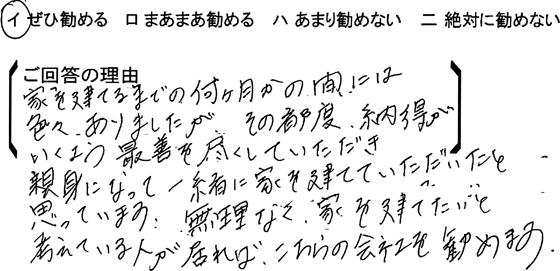 イ ぜひ勧める ロ まあまあ勧める ハ あまり勧めない ニ 絶対に勧めない
ご回答の理由
家を建てるまでの何ヶ月かの間には
色々ありましたが、その都度、納得が
いくよう最善を尽くしていただき
親身になって一緒に家を建てていただいたと
思っています。無理なく、家を建てたいと
考えている人が居れば、こちらの会社を勧めます。